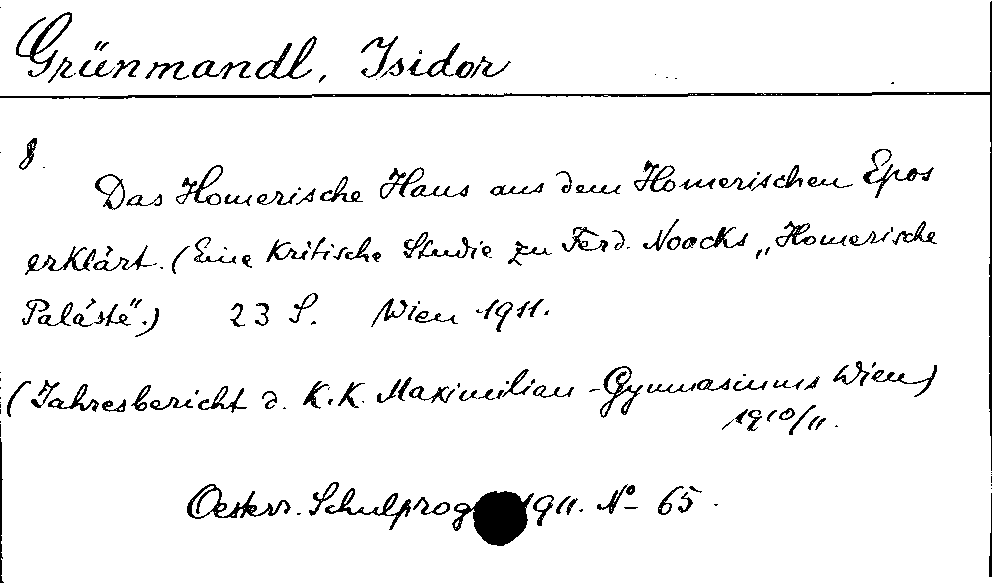 Grünmandl, Isidor
8.
Das Homerische Haus aus dem Homerischen Epos
erklärt. (Eine kritische Studie zu Ferd. Noacks „Homerische
Paläste“.) 23 S. Wien 1911.
(Jahresbericht d. K.K. Maximilian-Gymnasiums Wien)
1910/11.
Oesterr. Schulprog 1911. No 65.